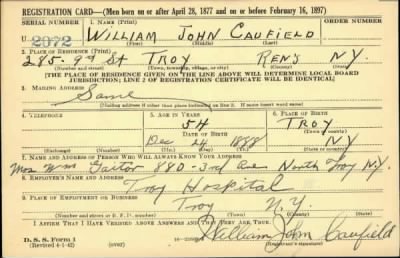 REGISTRATION CARD—(Men born on or after April 28, 1877 and on or before February 16, 1897)
SERIAL NUMBER 1. NAME (Print) ORDER NUMBER
U 2072 WILLIAM JOHN CAUFIELD
(First) (Middle) (Last)
2. PLACE OF RESIDENCE (Print)
285-9th St TROY RENS N.Y.
(Number and street) (Town, township, village, or city) (County) (State)
[THE PLACE OF RESIDENCE GIVEN ON THE LINE ABOVE WILL DETERMINE LOCAL BOARD
JURISDICTION; LINE 2 OF REGISTRATION CERTIFICATE WILL BE IDENTICAL]
3. MAILING ADDRESS
Same
[Mailing address if other than place indicated on line 2. If same insert word same]
4. TELEPHONE 5. AGE IN YEARS 6. PLACE OF BIRTH
54 TROY
DATE OF BIRTH (Town or county)
Dec 24 1888 NY
(Exchange) (Number) (Mo.) (Day) (Yr.) (State or country)
7. NAME AND ADDRESS OF PERSON WHO WILL ALWAYS KNOW YOUR ADDRESS
Mrs Wm 880-3rd Ave North Troy N.Y.
8. EMPLOYER'S NAME AND ADDRESS
Troy Hospital
9. PLACE OF EMPLOYMENT OR BUSINESS
Troy N.Y.
(Number and street or R. F. D. number) (Town) (County) (State)
I AFFIRM THAT I HAVE VERIFIED ABOVE ANSWERS AND THAT THEY ARE TRUE.
D. S. S. Form 1 William John Caufield
(Revised 4-1-42) (over) (Registrant's signature)